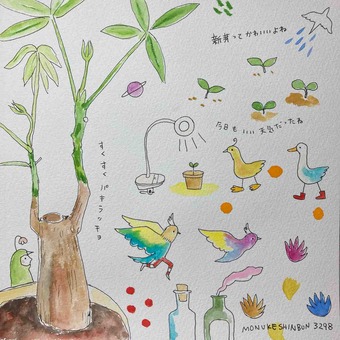 新芽ってかわいいよね
今日もいい天気だったね
すくすくパキラッチョ
MONUKESHINBUN 3298